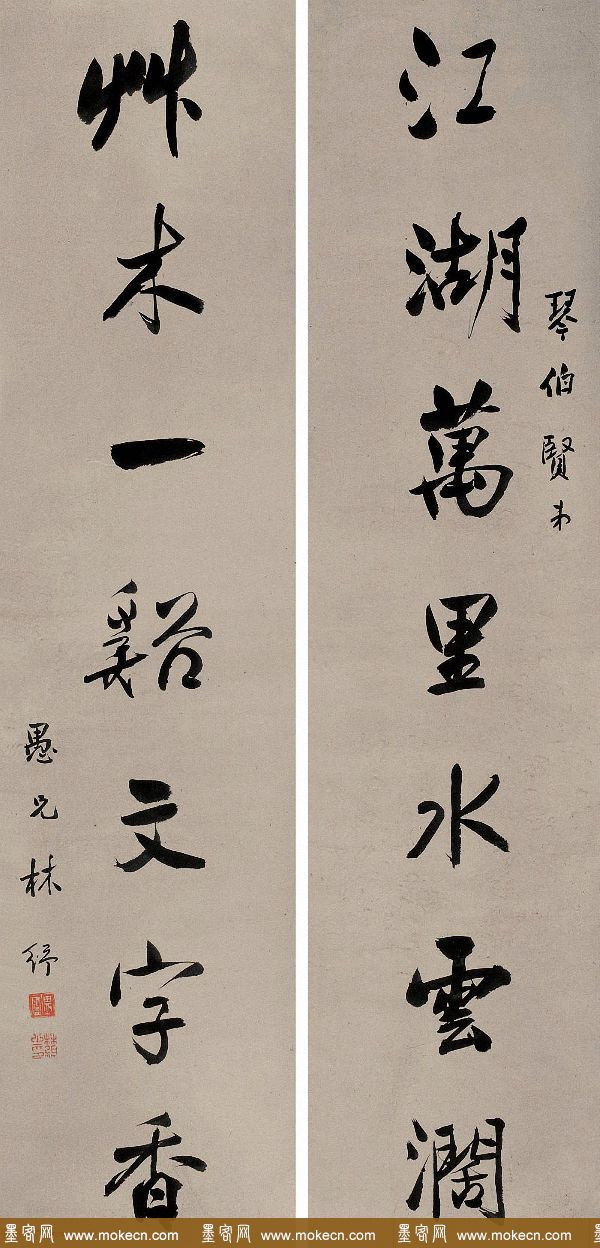 江湖萬里水雲濶
琴伯賢弟
艸木一谿文字香
愚兄林紓
墨客网 www.mokecn.com 墨客网 www.mokecn.com 墨客网 www.mokecn.com